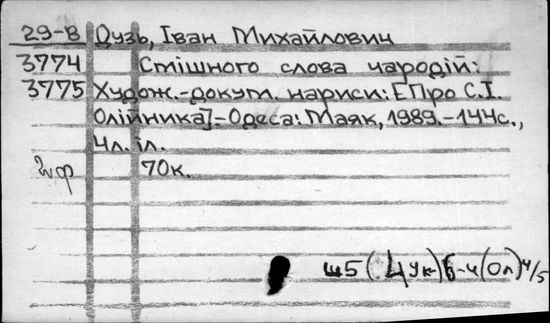 29-В Дузь, Іван Михайлович
3774 Смішного слова чародій:
3775 Худож.-докум. нариси: [Про С.І.
Олійника].-Одеса: Маяк, 1989.-144с.,
4л. іл.
70к.
ш5(4Ук)6-4(Ол)4/5